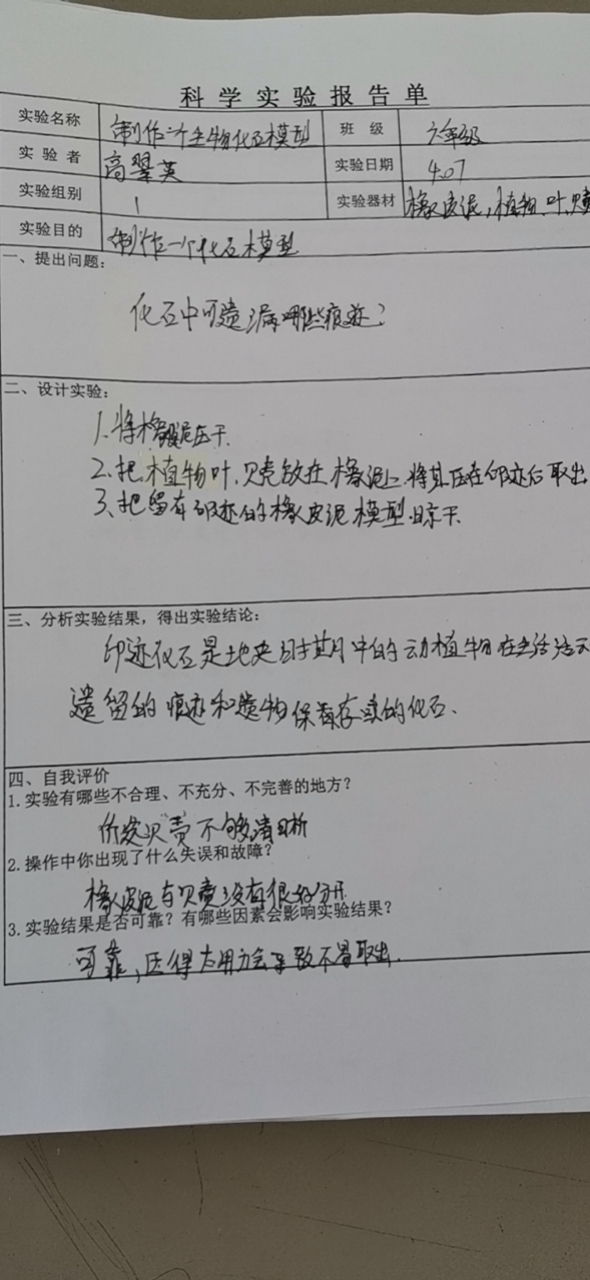 科学实验报告单
实验名称 制作一个生物化石模型 班级 六年级
实验者 高翠英 实验日期 4.07
实验组别 1 实验器材 橡皮泥,植物、叶,贝壳
实验目的 制作一个化石模型
一、提出问题:
化石中可遗漏哪些痕迹?
二、设计实验:
1.将橡皮泥压干
2.把植物叶、贝壳放在橡泥上将其压在印迹后取出
3、把留有印迹的橡皮泥模型晾干
三、分析实验结果,得出实验结论:
印迹化石是地史时期中的动植物在生活活
遗留的痕迹和遗物保存的化石.
四、自我评价
1.实验有哪些不合理、不充分、不完善的地方?
不够清晰
2.操作中你出现了什么失误和故障?
橡皮泥与贝壳没有很好分开
3.实验结果是否可靠?有哪些因素会影响实验结果?
可靠,压得太用力会导致不易取出.